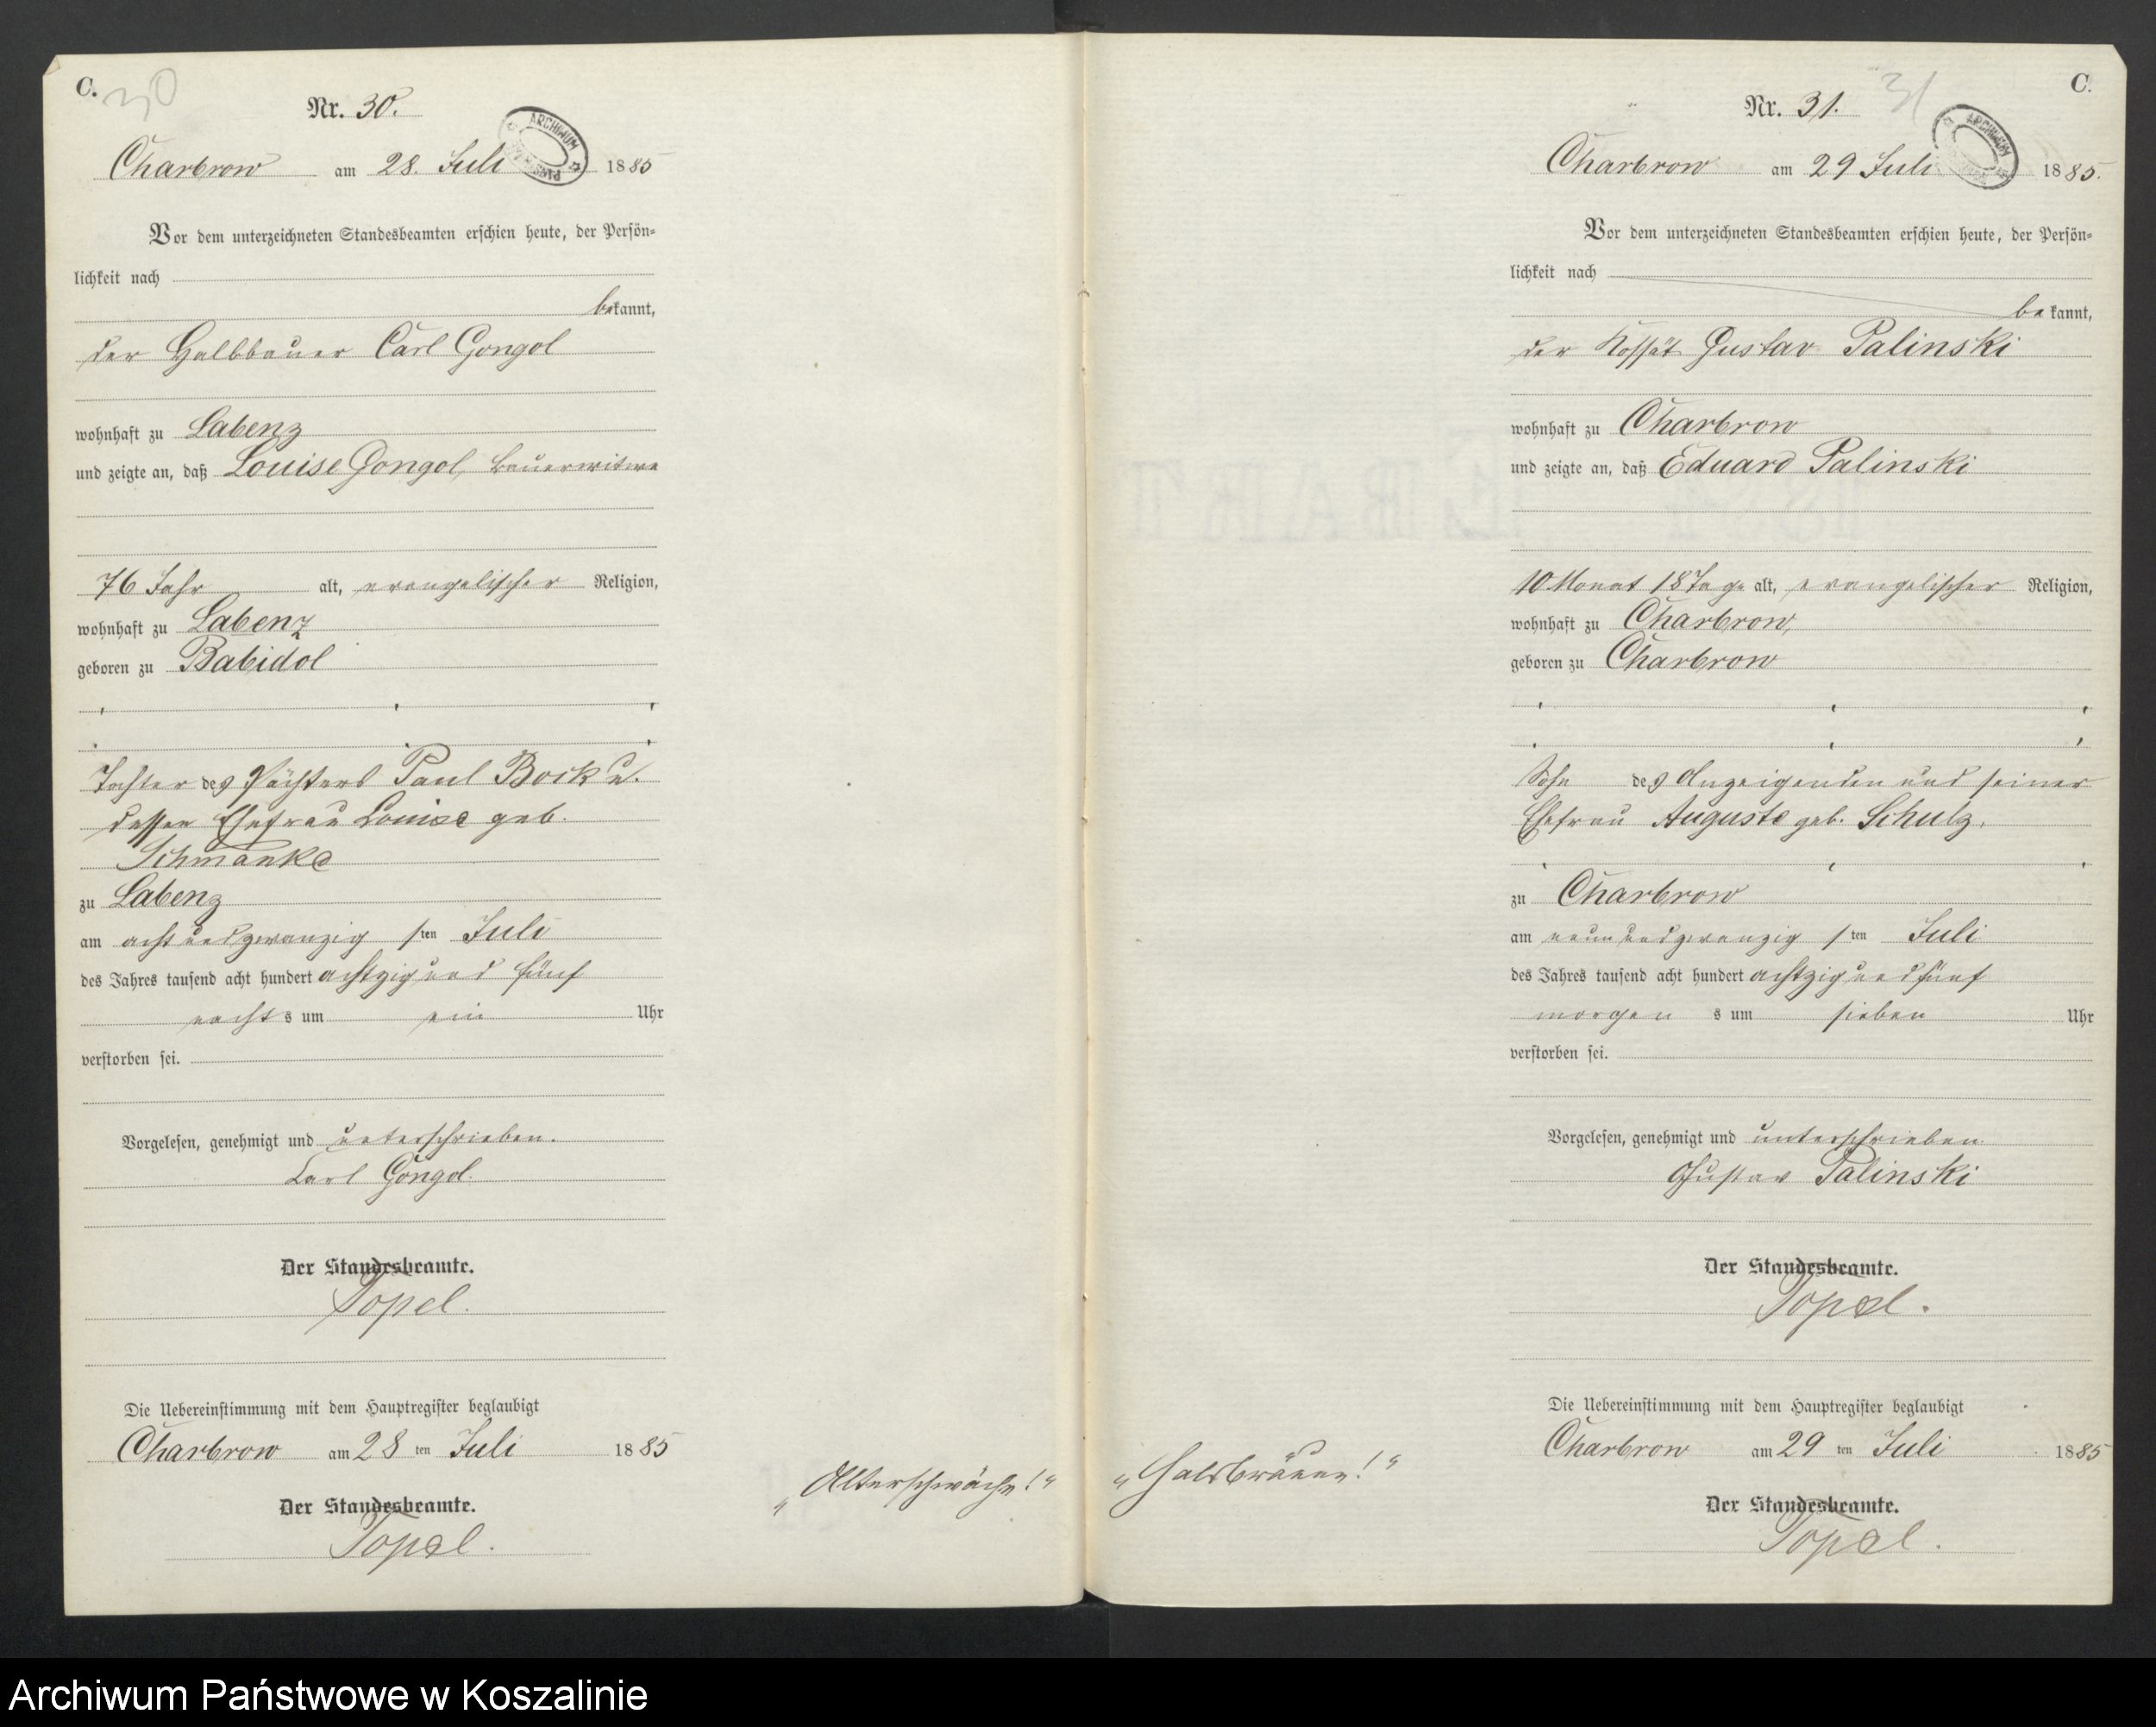 C. 30
Nr. 30.
ARCHIWUM
Charbrow am 28. Juli 1885
Vor dem unterzeichneten Standesbeamten erschien heute, der Persön-
lichkeit nach
bekannt,
der Halbbauer Carl Gongol
wohnhaft zu Labenz
und zeigte an, daß Louise Gongol, Bauerwitwe
76 Jahr alt, evangelischer Religion,
wohnhaft zu Labenz
geboren zu Babidol
Tochter des Pächters Paul Bock u.
dessen Ehefrau Louise geb.
Schmanke
zu Labenz
am acht und zwanzigsten Juli
des Jahres tausend acht hundert achtzig und fünf
nachts um ein Uhr
verstorben sei.
Vorgelesen, genehmigt und unterschrieben.
Carl Gongol.
Der Standesbeamte.
Topel.
Die Uebereinstimmung mit dem Hauptregister beglaubigt
Charbrow am 28ten Juli 1885
Der Standesbeamte.
Topel.
„Alterschwäche!“
C.
Nr. 31. 31
ARCHIWUM
Charbrow am 29 Juli 1885.
Vor dem unterzeichneten Standesbeamten erschien heute, der Persön-
lichkeit nach
bekannt,
der Kossät Gustav Palinski
wohnhaft zu Charbrow
und zeigte an, daß Eduard Palinski
10 Monat 18 Tage alt, evangelischer Religion,
wohnhaft zu Charbrow,
geboren zu Charbrow
Sohn des Anzeigenden und seiner
Ehefrau Auguste geb. Schulz,
zu Charbrow
am neun und zwanzigsten Juli
des Jahres tausend acht hundert achtzig und fünf
morgens um sieben Uhr
verstorben sei.
Vorgelesen, genehmigt und unterschrieben
Gustav Palinski
Der Standesbeamte.
Topel.
Die Uebereinstimmung mit dem Hauptregister beglaubigt
Charbrow am 29ten Juli 1885
Der Standesbeamte.
Topel.
„Halsbräune!“
Archiwum Państwowe w Koszalinie